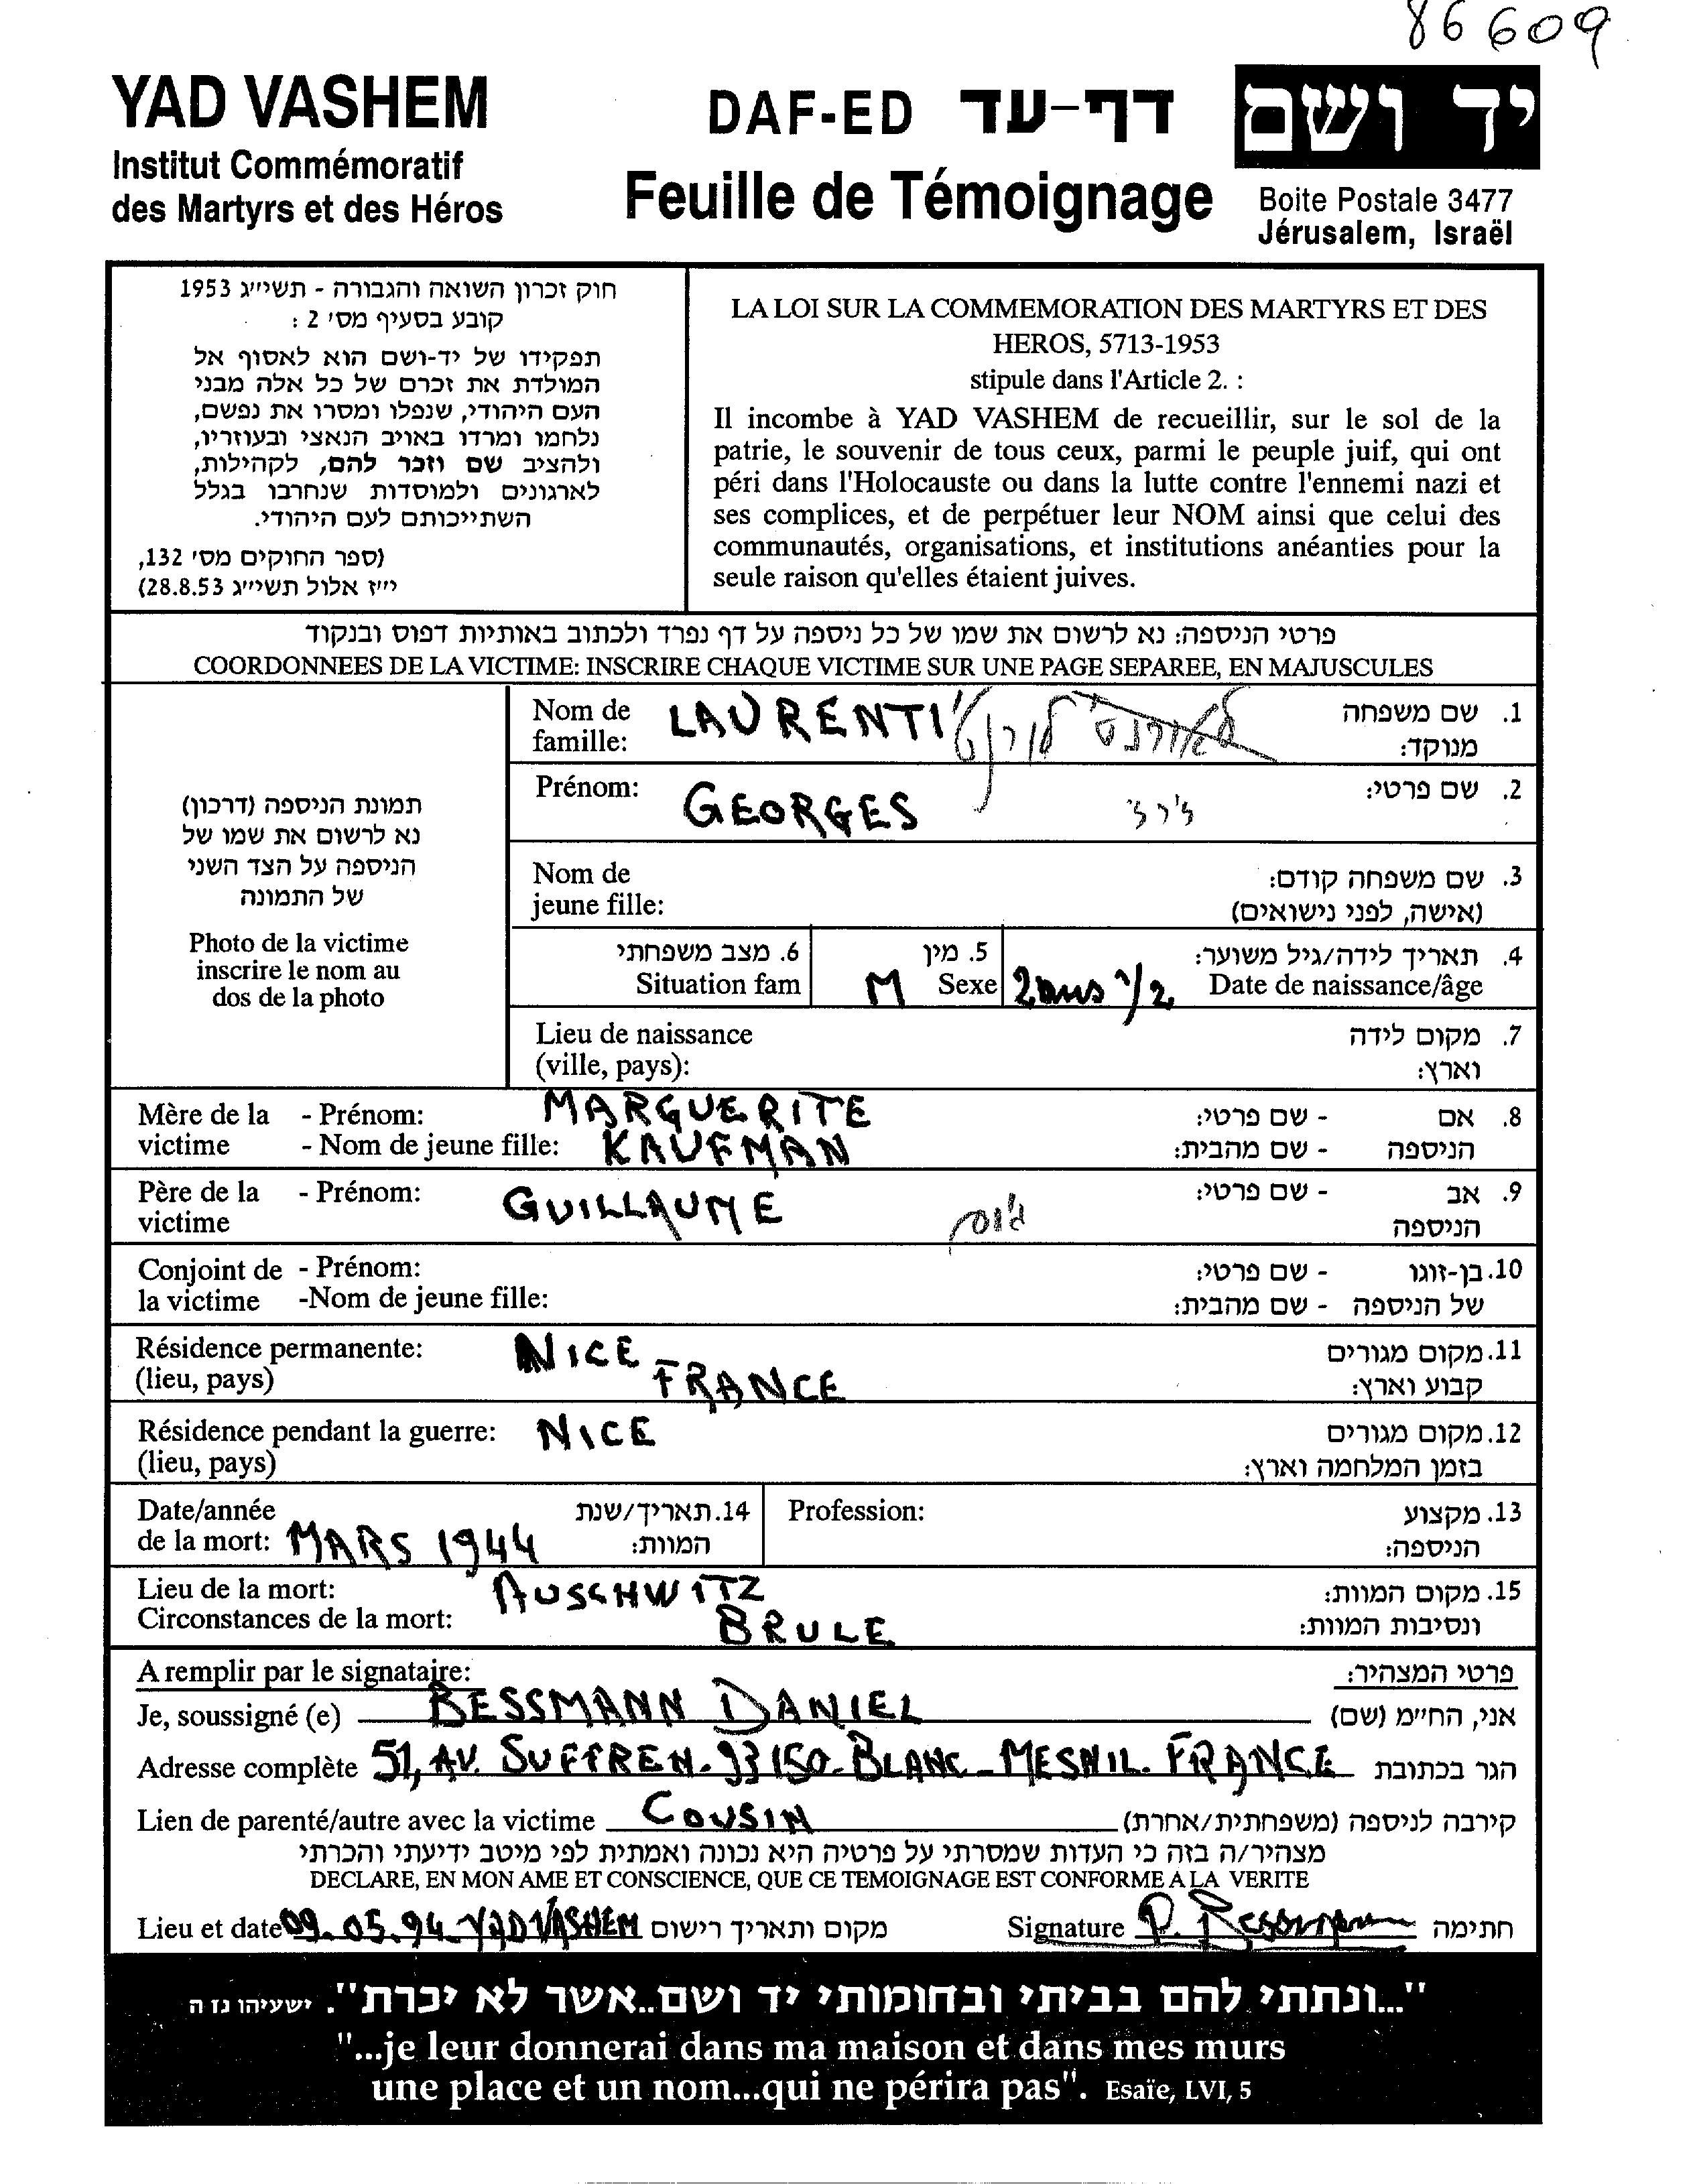 86609
YAD VASHEM
Institut Commémoratif
des Martyrs et des Héros
DAF-ED דף-עד
Feuille de Témoignage
יד ושם
Boite Postale 3477
Jérusalem, Israël
חוק זכרון השואה והגבורה - תשי״ג 1953
קובע בסעיף מס׳ 2 :
תפקידו של יד-ושם הוא לאסוף אל
המולדת את זכרם של כל אלה מבני
העם היהודי, שנפלו ומסרו את נפשם,
נלחמו ומרדו באויב הנאצי ובעוזריו,
ולהציב שם וזכר להם, לקהילות,
לארגונים ולמוסדות שנחרבו בגלל
השתייכותם לעם היהודי.
(ספר החוקים מס׳ 132,
י״ז אלול תשי״ג 28.8.53)
LA LOI SUR LA COMMEMORATION DES MARTYRS ET DES
HEROS, 5713-1953
stipule dans l'Article 2. :
Il incombe à YAD VASHEM de recueillir, sur le sol de la
patrie, le souvenir de tous ceux, parmi le peuple juif, qui ont
péri dans l'Holocauste ou dans la lutte contre l'ennemi nazi et
ses complices, et de perpétuer leur NOM ainsi que celui des
communautés, organisations, et institutions anéanties pour la
seule raison qu'elles étaient juives.
פרטי הניספה: נא לרשום את שמו של כל ניספה על דף נפרד ולכתוב באותיות דפוס ובנקוד
COORDONNEES DE LA VICTIME: INSCRIRE CHAQUE VICTIME SUR UNE PAGE SEPAREE, EN MAJUSCULES
תמונת הניספה (דרכון)
נא לרשום את שמו של
הניספה על הצד השני
של התמונה
Photo de la victime
inscrire le nom au
dos de la photo
Nom de LAURENTI לורנטי 1. שם משפחה
famille: מנוקד:
Prénom: GEORGES ז'רז' 2. שם פרטי:
Nom de 3. שם משפחה קודם:
jeune fille: (אישה, לפני נישואים)
6. מצב משפחתי 5. מין 4. תאריך לידה/גיל משוער:
Situation fam M Sexe 2 ans 1/2 Date de naissance/âge
Lieu de naissance 7. מקום לידה
(ville, pays): וארץ:
Mère de la - Prénom: MARGUERITE - שם פרטי: 8. אם
victime - Nom de jeune fille: KAUFMAN - שם מהבית: הניספה
Père de la - Prénom: GUILLAUME גיום - שם פרטי: 9. אב
victime הניספה
Conjoint de - Prénom: - שם פרטי: 10. בן-זוגו
la victime -Nom de jeune fille: - שם מהבית: של הניספה
Résidence permanente: NICE 11. מקום מגורים
(lieu, pays) FRANCE קבוע וארץ:
Résidence pendant la guerre: NICE 12. מקום מגורים
(lieu, pays) בזמן המלחמה וארץ:
Date/année 14. תאריך/שנת Profession: 13. מקצוע
de la mort: MARS 1944 המוות: הניספה:
Lieu de la mort: AUSCHWITZ 15. מקום המוות:
Circonstances de la mort: BRULE ונסיבות המוות:
A remplir par le signataire: פרטי המצהיר:
Je, soussigné (e) BESSMANN DANIEL אני, הח״מ (שם)
Adresse complète 51, AV. SUFFREN. 93150. BLANC-MESNIL. FRANCE הגר בכתובת
Lien de parenté/autre avec la victime COUSIN קירבה לניספה (משפחתית/אחרת)
מצהיר/ה בזה כי העדות שמסרתי על פרטיה היא נכונה ואמתית לפי מיטב ידיעתי והכרתי
DECLARE, EN MON AME ET CONSCIENCE, QUE CE TEMOIGNAGE EST CONFORME A LA VERITE
Lieu et date 09.05.94 YAD VASHEM מקום ותאריך רישום Signature D. Bessmann חתימה
"...ונתתי להם בביתי ובחומותי יד ושם..אשר לא יכרת". ישעיהו נז ה
"...je leur donnerai dans ma maison et dans mes murs
une place et un nom...qui ne périra pas". Esaïe, LVI, 5